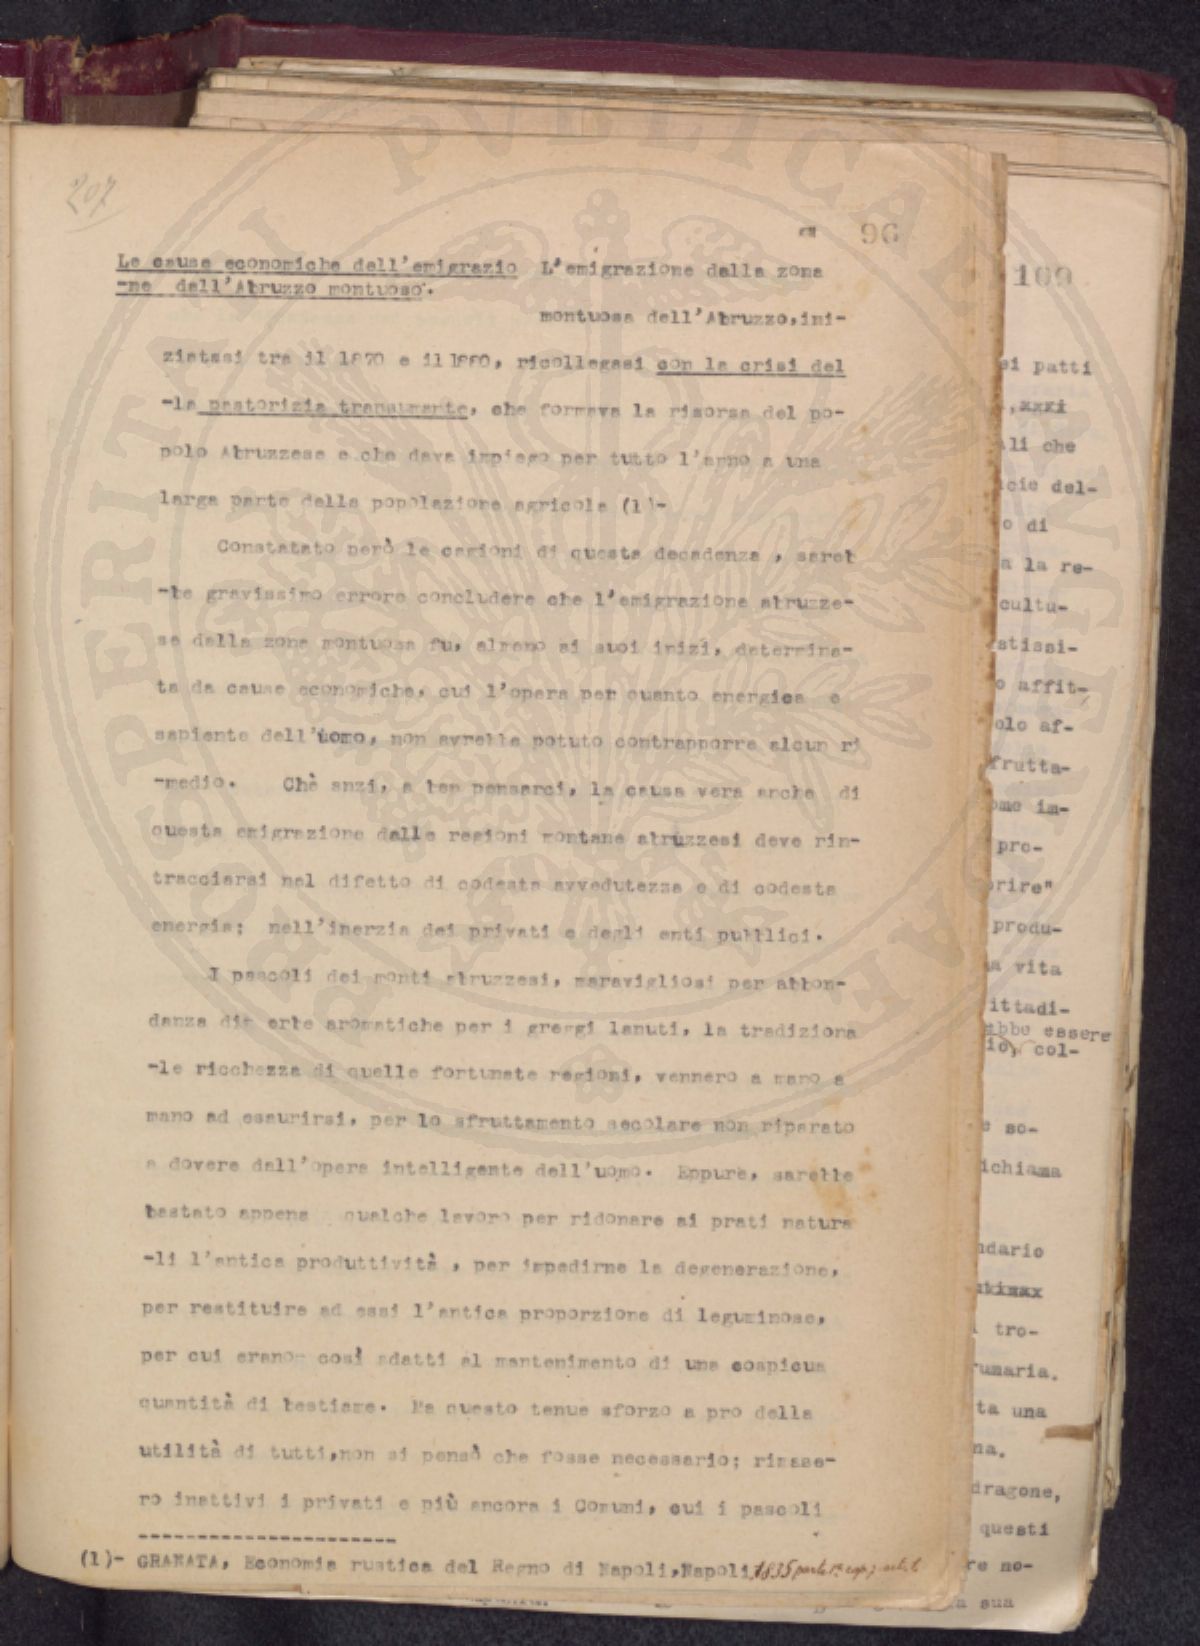 207
96
Le cause economiche dell'emigrazio L'emigrazione dalla zona
-ne dell'Abruzzo montuoso.
montuosa dell'Abruzzo,ini-
ziatasi tra il 1870 e il 1880, ricollegasi con la crisi del
-la pastorizia transumante, che formava la risorsa del po-
polo Abruzzese e che dava impiego per tutto l'anno a una
larga parte della popolazione agricola (1)-
Constatato però le cagioni di questa decadenza , sareb
-be gravissimo errore concludere che l'emigrazione abruzze-
se dalla zona montuosa fu, almeno ai suoi inizi, determina-
ta da cause economiche, cui l'opera per quanto energica e
sapiente dell'uomo, non avrebbe potuto contrapporre alcun ri
-medio. Chè anzi, a ben pensarci, la causa vera anche di
questa emigrazione dalle regioni montane abruzzesi deve rin-
tracciarsi nel difetto di codesta avvedutezza e di codesta
energia; nell'inerzia dei privati e degli enti pubblici.
I pascoli dei monti abruzzesi, maravigliosi per abbon-
danza di erbe aromatiche per i greggi lanuti, la tradiziona
-le ricchezza di quelle fortunate regioni, vennero a mano a
mano ad esaurirsi, per lo sfruttamento secolare non riparato
a dovere dall'opera intelligente dell'uomo. Eppure, sarebbe
bastato appena qualche lavoro per ridonare ai prati natura
-li l'antica produttività , per impedirne la degenerazione,
per restituire ad essi l'antica proporzione di leguminose,
per cui erano così adatti al mantenimento di una cospicua
quantità di bestiame. Ma questo tenue sforzo a pro della
utilità di tutti,non si pensò che fosse necessario; rimase-
ro inattivi i privati e più ancora i Comuni, cui i pascoli
(1)- GRANATA, Economia rustica del Regno di Napoli,Napoli,1835 parte 1ª cap.
109
ei patti
,xxxi
ali che
icie del-
o di
a la re-
cultu-
stissi-
o affit-
olo af-
frutta-
ome im-
pro-
prire"
produ-
a vita
ittadi-
ebbe essere
io, col-
e so-
ichiama
ndario
tro-
rumaria.
ta una
na.
dragone,
questi
re no-
a sua